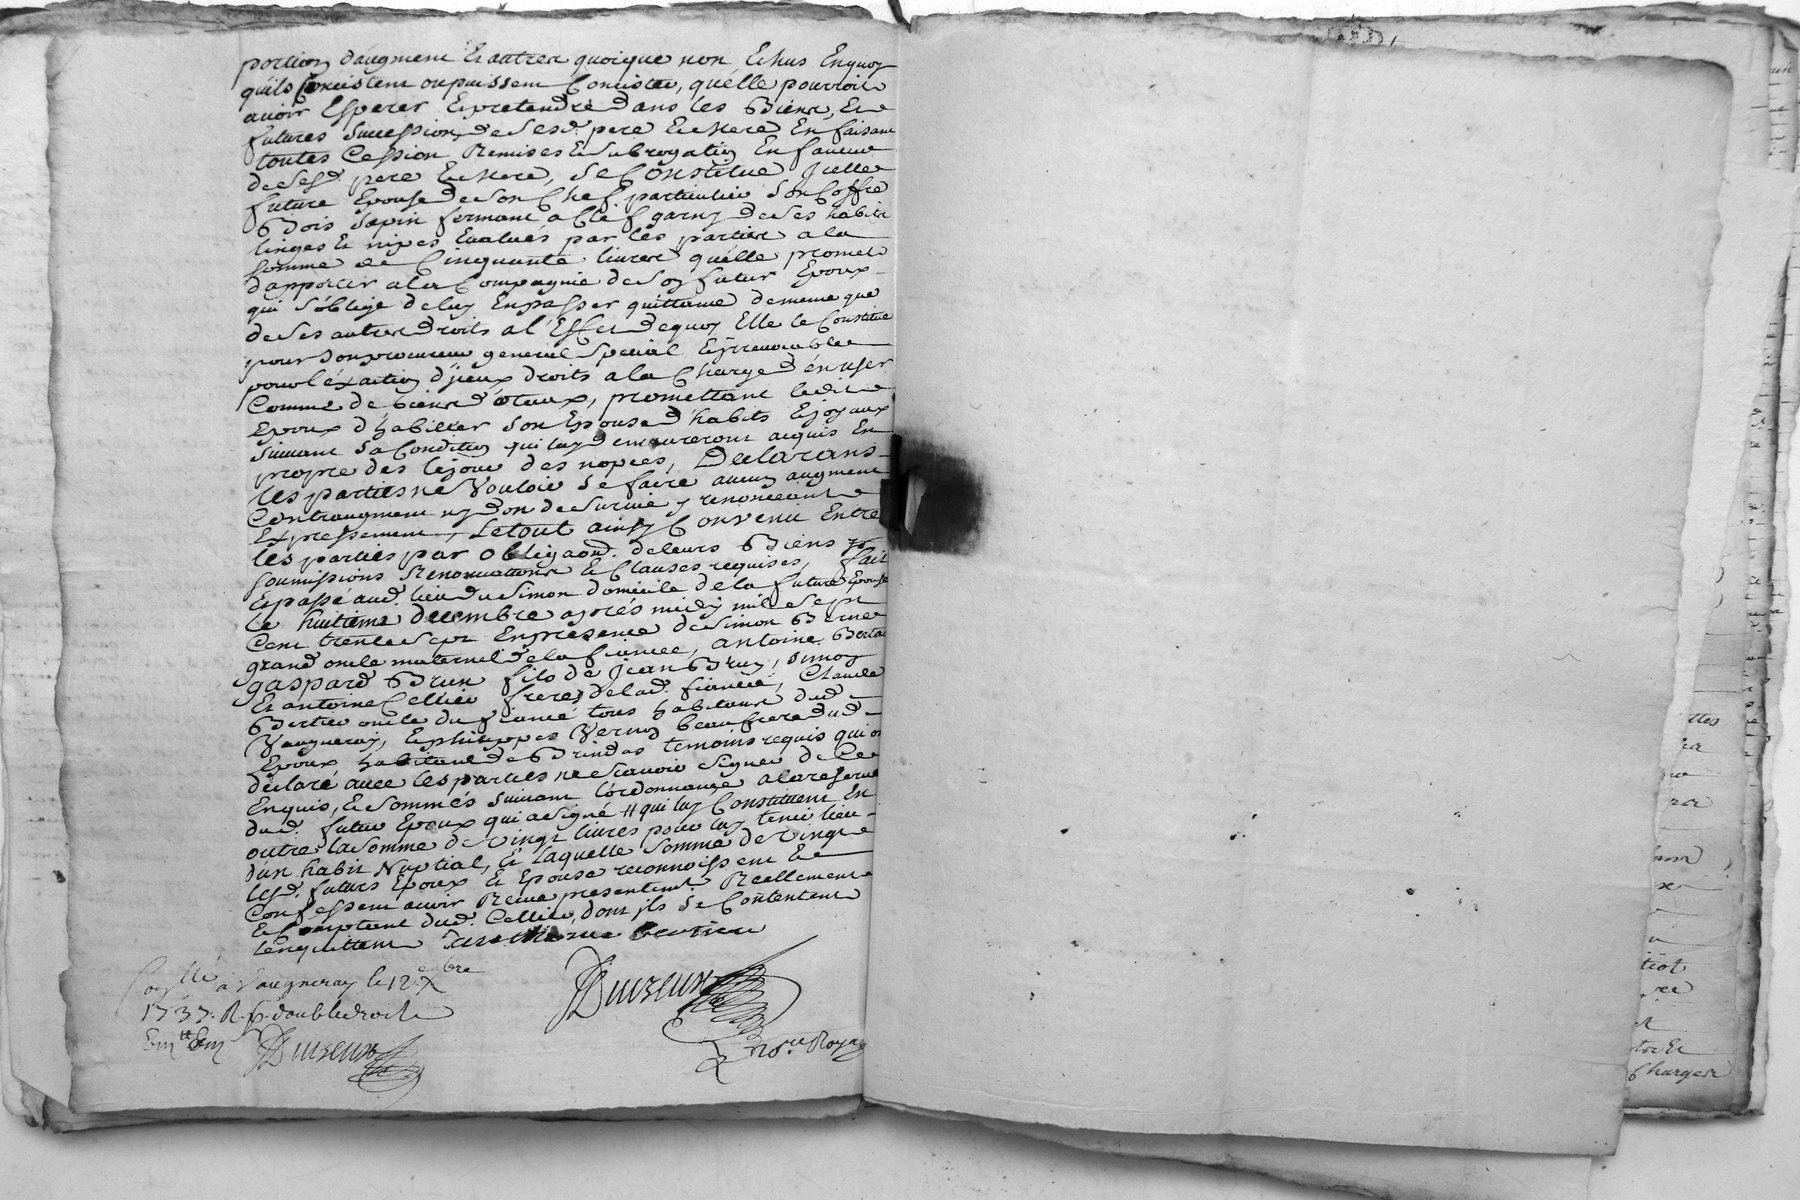 portion d'augment Et autres quoique non Echus En quoy
qu'ils Consistent ou puissent Consister, qu'elle pourroit
avoir Esperer Et pretendre dans les Biens, Et
futures Succession de Sesd. pere Et Mere En faisant
toutes Cession Remises Et Subrogation En faveur
de Sesd. pere Et Mere, Se Constitue Jcelle
future Epouse de Son Chef particulier Son Coffre
Bois Sapin fermant a Clef garny de Ses habits
linges Et nipes Evalués par les parties a la
Somme de Cinquante livres qu'elle promet
d'apporter a la Compagnie de Son futur Epoux
qui s'oblige de luy En passer quittance de meme que
de Ses autres droits a l'Effet de quoy Elle le Constitue
pour Son procureur general Special Et jrrevocable
pour l'éxaction d'jceux droits a la Charge d'én user
Comme de biens dotaux, promettant ledit
Epoux d'habiller Son Epouse d'habits Et joyaux
Suivant Sa Condition qui luy demeureront acquis En
propre des le jour des nopces, Declarans
les parties ne Vouloir Se faire aucun augment
Contraugment ny don de Survie y renonceant
Expressement, Le tout ainsy Convenu Entre
les parties par Obligaons. de leurs Biens
Soumissions Renonciations Et Clauses requises, fait
Et passé aud. lieu du Simon domicile de la future Epouse
le huitieme decembre aprés midy mil Sept
Cent trente Sept En presence de Simon Berne
grand oncle maternel de la fiancée, antoine
gaspard Brun fils de Jean Brun, Simon
Et antoine Cellier freres de lad. fiancée, Claude
Bertier oncle du fiancé tous habitans dud.
Vaugneray, Et philippes Verne beaufrere dud.
Epoux habitant de Brindas temoins requis qui on
declaré avec les parties ne Scavoir Signer de Ce
Enquis, Et Sommés Suivant l'ordonnance a la reserve
dud. futur Epoux qui a Signé # qui luy Constituent En
outre la Somme de Vingt livres pour luy tenir lieu
d'un habit Nuptial, Et laquelle Somme de Vingt
lesd. futurs Epoux Et Epouse reconnoissent Et
Confessent avoir Receue presentemt. Reellement
Et Comptant dud. Cellier, dont jls Se Contentent
l'en quittent
Conllé a Vaugneray le 12e. Xbre
1737. R. p. double droit